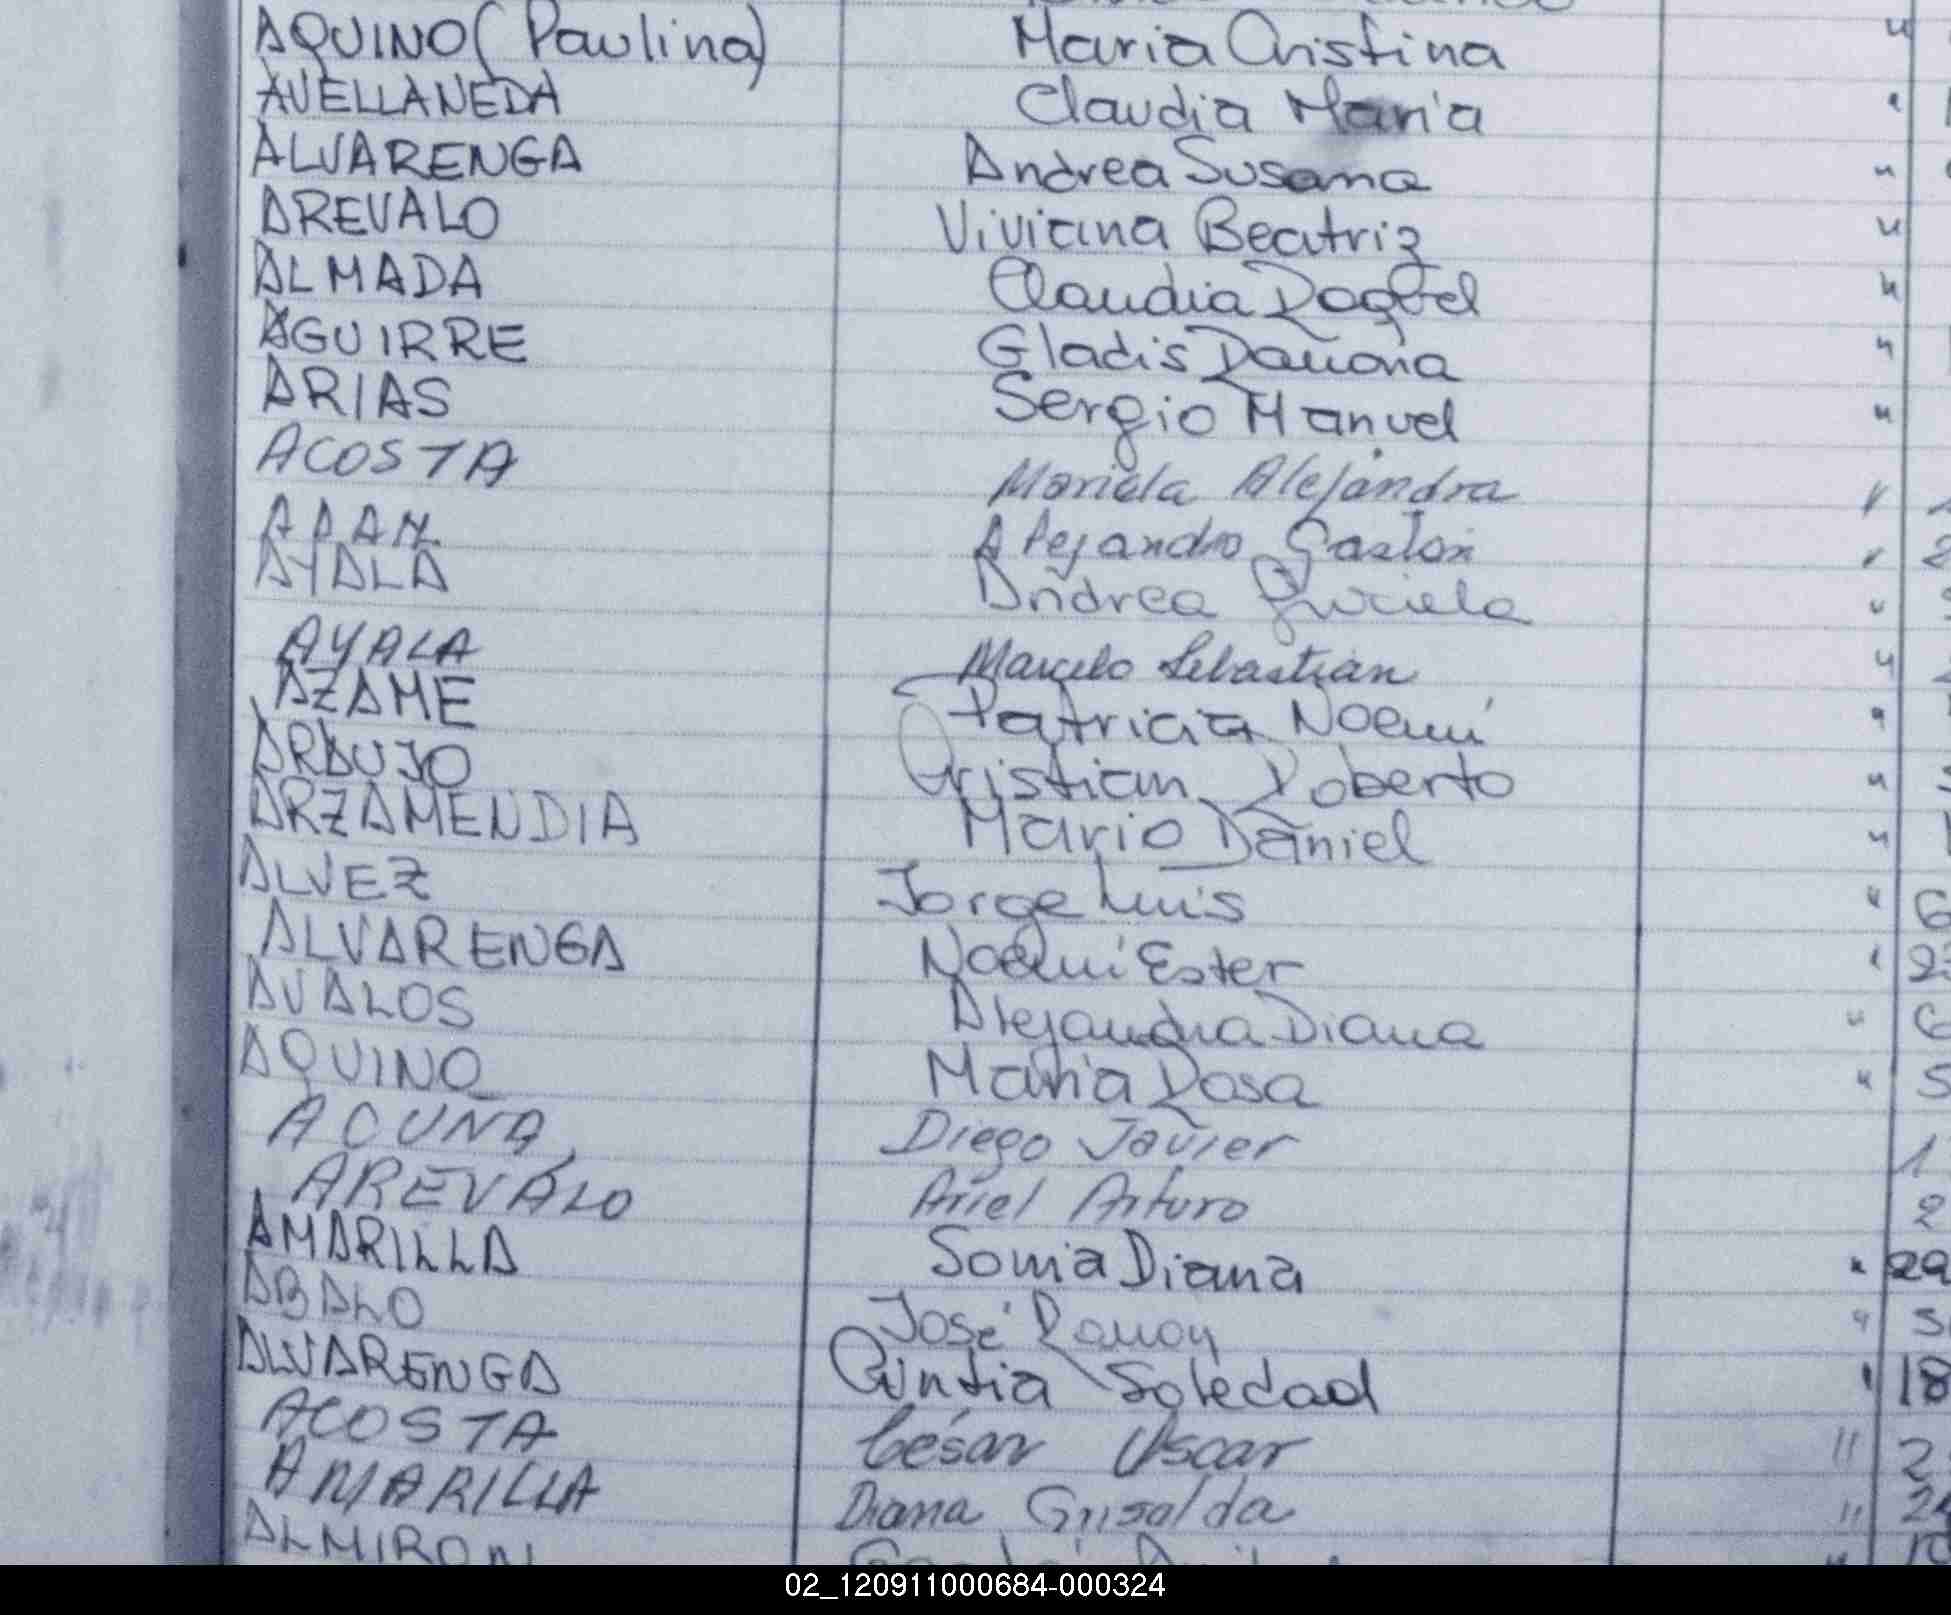 AQUINO (Paulina) Maria Cristina "
AVELLANEDA Claudia Maria "
ALVARENGA Andrea Susana "
AREVALO Viviana Beatriz "
ALMADA Claudia Raquel "
AGUIRRE Gladis Ramona "
ARIAS Sergio Manuel "
ACOSTA Mariela Alejandra "
ADAN Alejandro Gastón "
AYALA Andrea "
AYALA Marcelo Sebastian "
AZAME Patricia Noemí "
ARAUJO Cristian Roberto "
ARZAMENDIA Mario Daniel "
ALVEZ Jorge Luis " 6
ALVARENGA Noemí Ester "
AVALOS Alejandra Diana " 6
AQUINO Maria Rosa " 5
ACUÑA Diego Javier 1
AREVALO Ariel Arturo 2
AMARILLA Sonia Diana " 29
ABALO José Ramon "
ALVARENGA Cintia Soledad " 18
ACOSTA César Oscar " 2
AMARILLA Diana Griselda " 24
ALMIRON
02_120911000684-000324